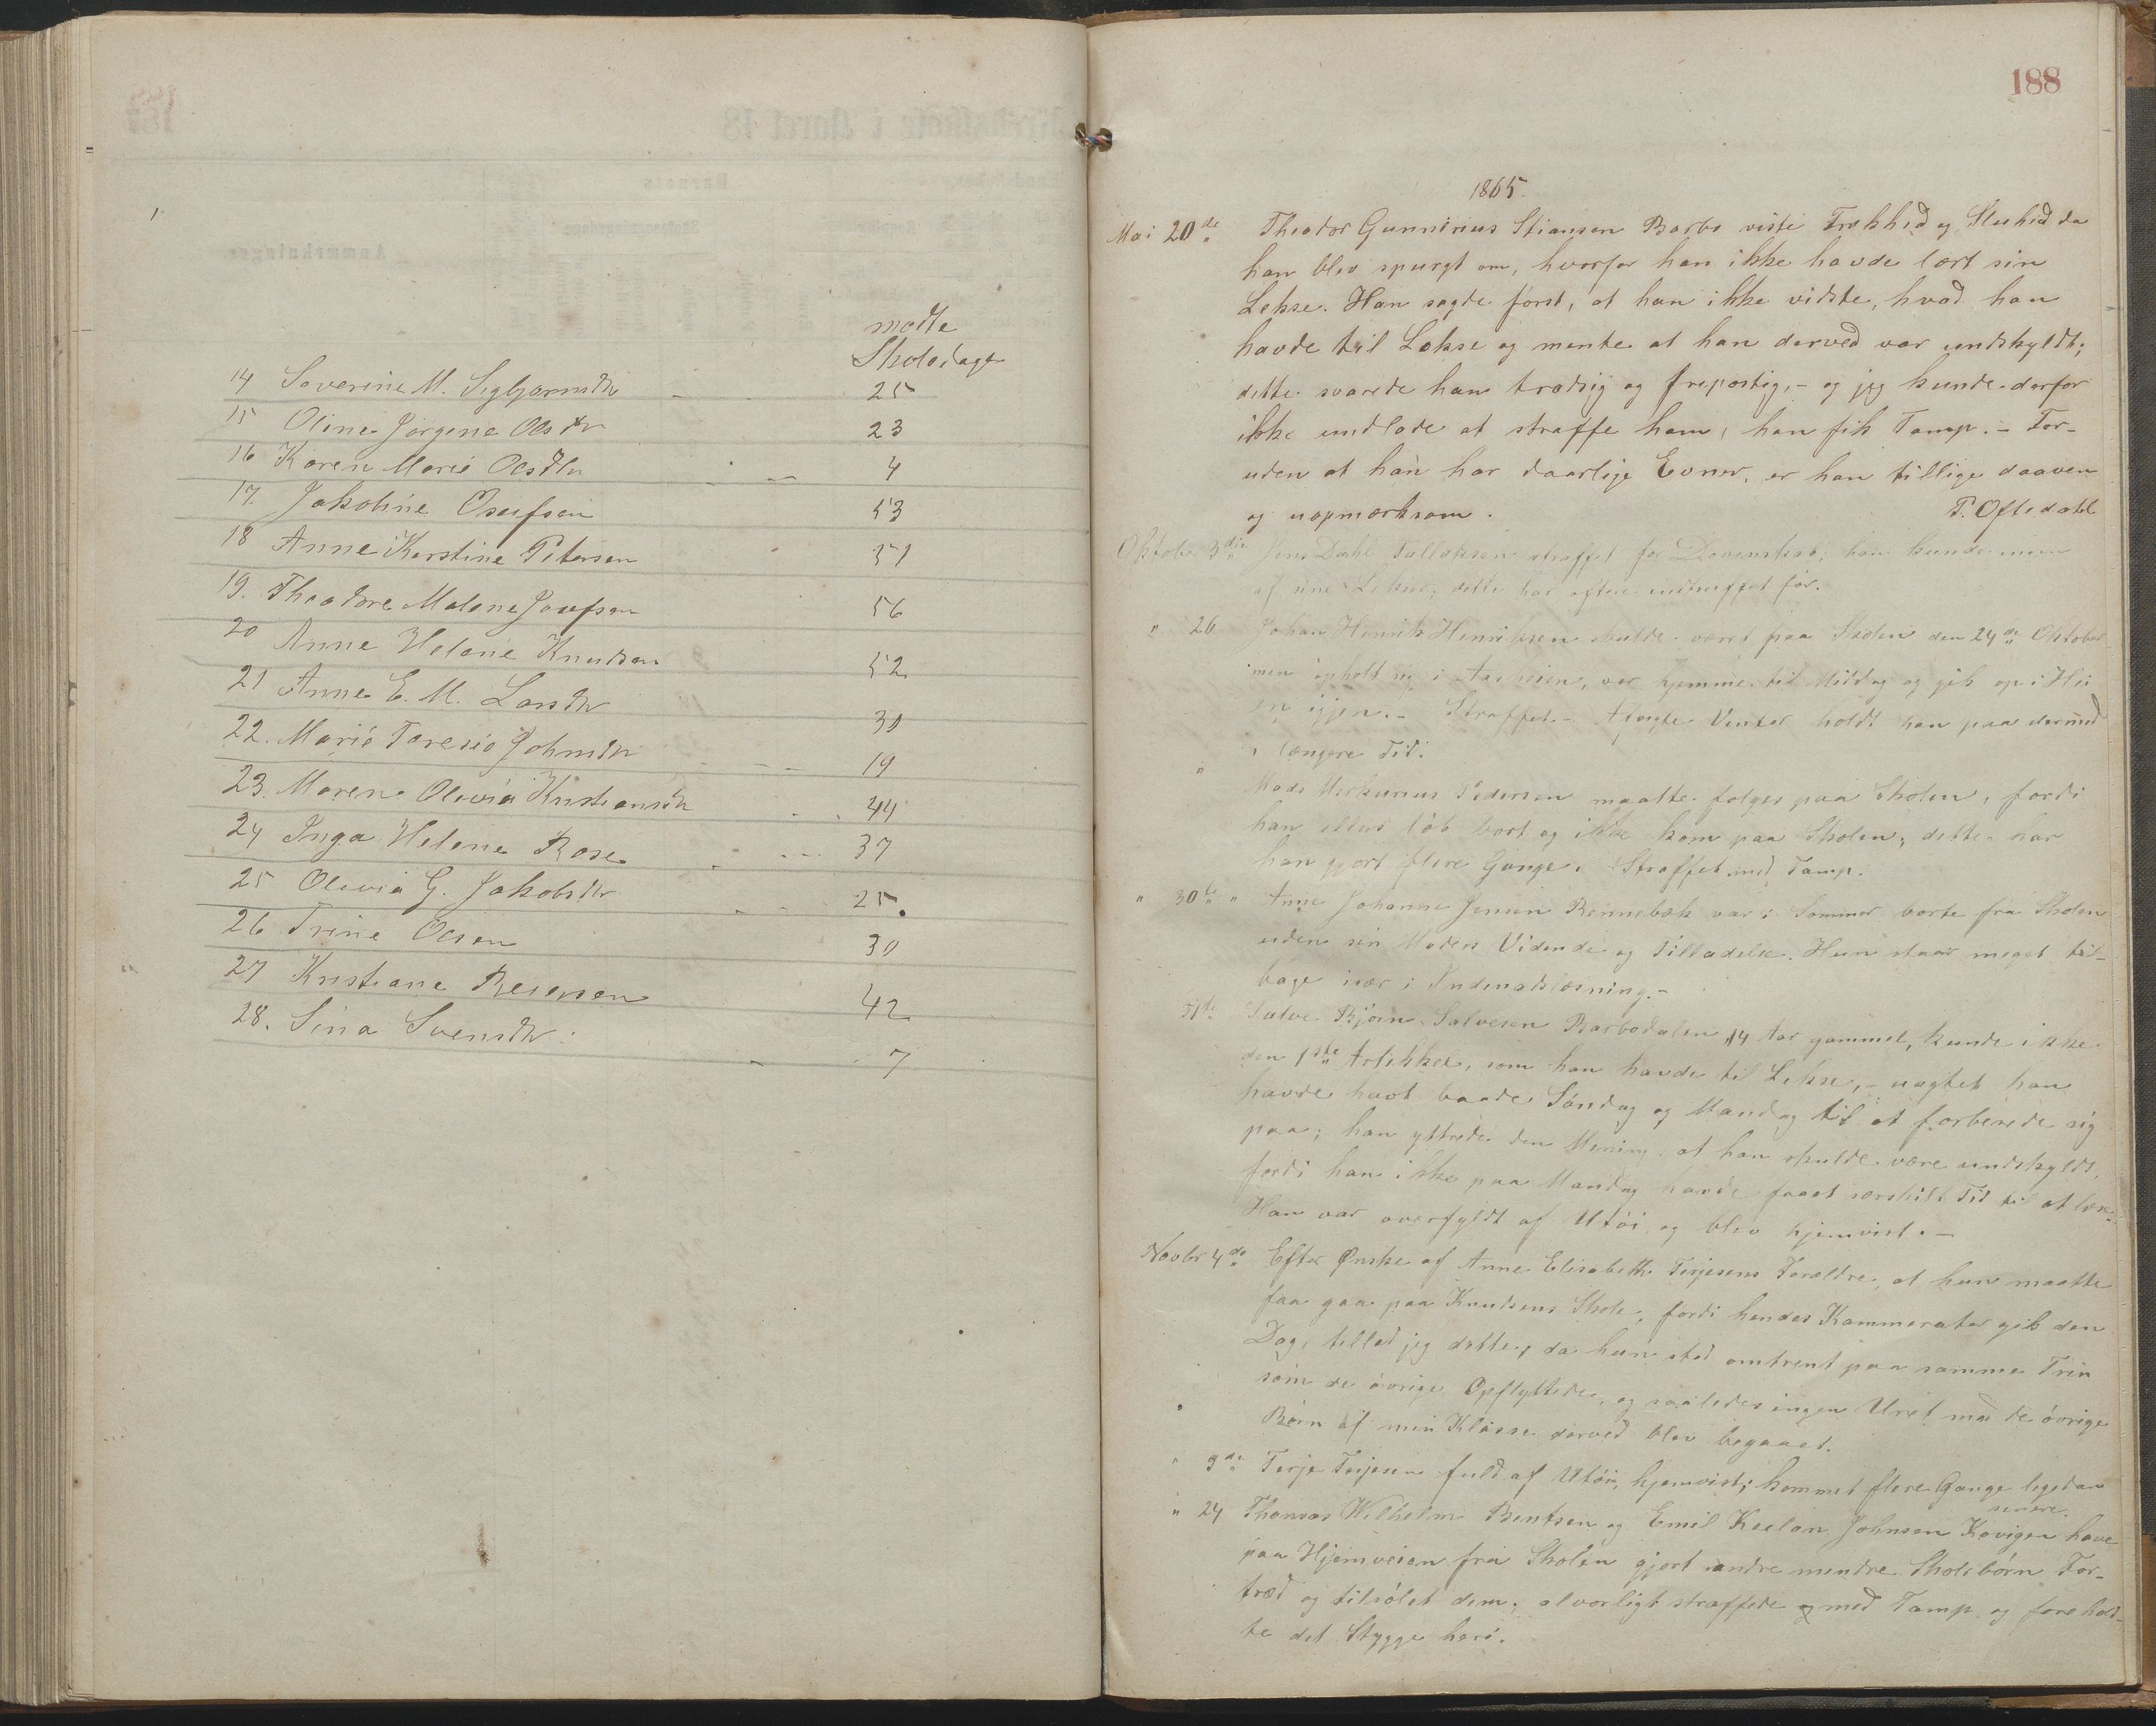 mødte
Skoledage
14 Severine M. Sigbjørnsdtr 25
15 Oline Jørgine Olsdtr 23
16 Karen Marie Olsdtr 4
17. Jakobine Oseifsen 53
18 Anne Kirstine Petersen 51
19. Theodore Malene Josefsen 56
20 Anne Helene Knudsen 52
21 Anne E. M. Larsdtr 30
22. Marie Taresie Johnsdtr 19
23. Maren Olevia Kristiansdtr 44
24 Inga Helene Rose 37
25 Olevia G. Jakobsdtr 25.
26 Trine Olsen 30
27 Kristiane 42
28. Sina Svensdtr 7
188
1865.
Mai 20de Theodor Gunnerius Stiansen Barbo viste Frækhed og Sluhed da
han blev spurgt om, hvorfor han ikke havde lært sin
Lekse. Han sagde først, at han ikke vidste, hvad han
havde til Lekse og mente at han derved var undskyldt;
dette svarede han trodsig og frepostig, – og jeg kunde derfor
ikke undlade at straffe ham, han fik Tamp. – For-
uden at han har daarlige Evner, er han tillige daaven
og uopmærksom. T. Oftedahl
Oktober 3die Jens Dahl Tallaksen straffet for Dovenskab; han kunde
af sine Lekser; dette har oftere indtruffet før.
" 26 Johan Henrik Henriksen skulde været paa Skolen den 24de Oktober
men opholt sig i, var hjemme til Middag og gik op i Hei
en igjen. – Straffet. – Afvigte Vinter holdt han paa dermed
i længere Tid.
" Mads Merkurius Pedersen maatte følges paa Skolen, fordi
han ellers løb bort og ikke kom paa Skolen; dette har
han gjort flere Gange. Straffet med Tamp.
" 30te " Anne Johanne Jensen Rennebæk var i Sommer borte fra Skolen
uden sin Moders Vidende og Tilladelse. Hun staar meget til-
bage især i Indenadslæsning. –
31te Salve Bjørn Salvesen Barbodalen, 14 Aar gammel, kunde ikke
den 1ste Artikkel, som han havde til Lekse, – uagtet han
havde havt baade Søndag og Mandag til at forberede sig
paa; han yttrede den Mening, at han skulde være undskyldt,
fordi han ikke paa Mandag havde faaet særskilt Tid til at læse.
Han var overfyldt af Utøi og blev hjemvist. –
Novbr 4de Efter Ønske af Anne Elisabeth Terjesens Forældre, at hun maatte
faa gaa paa Knudsens Skole, fordi hendes Kammerater gik den
Dag, tillod jeg dette, da hun stod omtrent paa samme Trin
som de øvrige Opflyttede, og saaledes ingen Uret mod de øvrige
Børn af min Klasse derved blev begaaet.
" 9de Terje Terjesen fuld af Utøi, hjemvist; kommet flere Gange ligedan
senere.
" 24 Thomas Wilhelm Bentsen og Emil Johnsen Kovigen have
paa Hjemveien fra Skolen gjort andre mindre Skolebørn For-
træd og tilsølet dem; alvorligt straffede med Tamp og forehold-
te det Stygge heri.